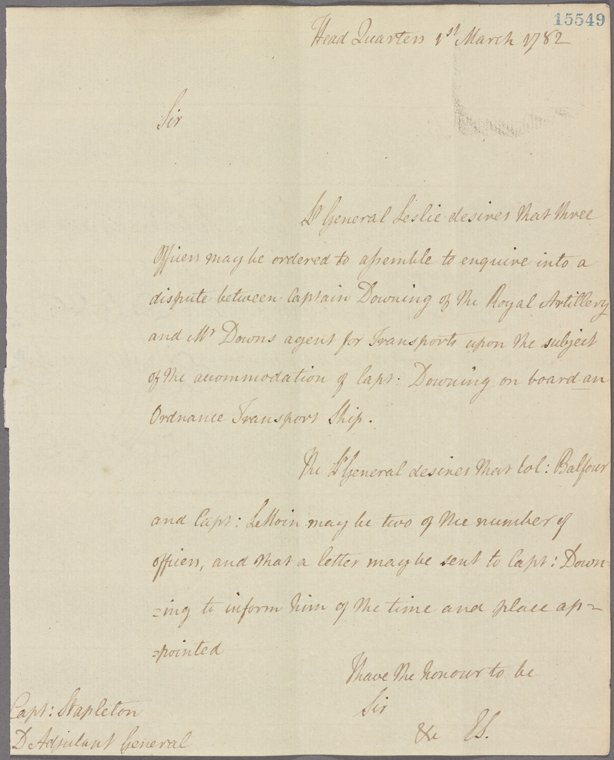 15549
Head Quarters 1st March 1782
Sir
Lt General Leslie desires that three
Officers may be ordered to assemble to enquire into a
dispute between Captain Downing of the Royal Artillery
and Mr Downs agent for Transports upon the subject
of the accommodation of Capt: Downing on board an
Ordnance Transport Ship.
The Lt General desires that Col: Balfour
and Capt: LeMoin may be two of the number of
officers, and that a letter may be sent to Capt: Down-
=ing to inform him of the time and place ap=
=pointed
I have the honour to be
Sir
&c
Capt: Stapleton
D Adjutant General